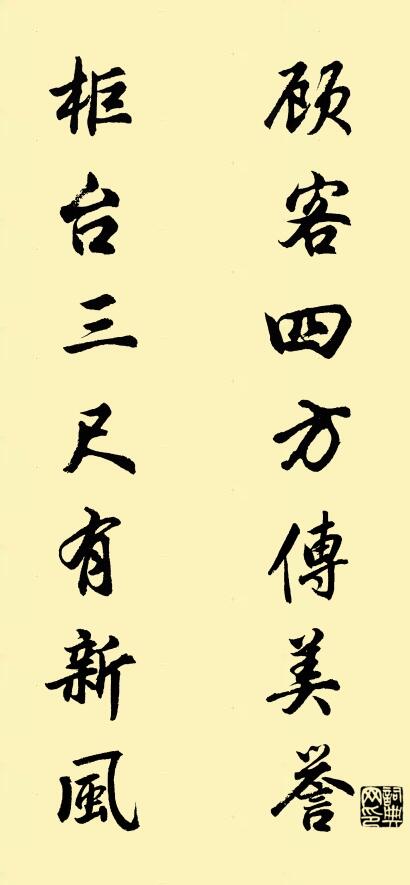 顾客四方傳美誉
柜台三尺有新風
詞典网印